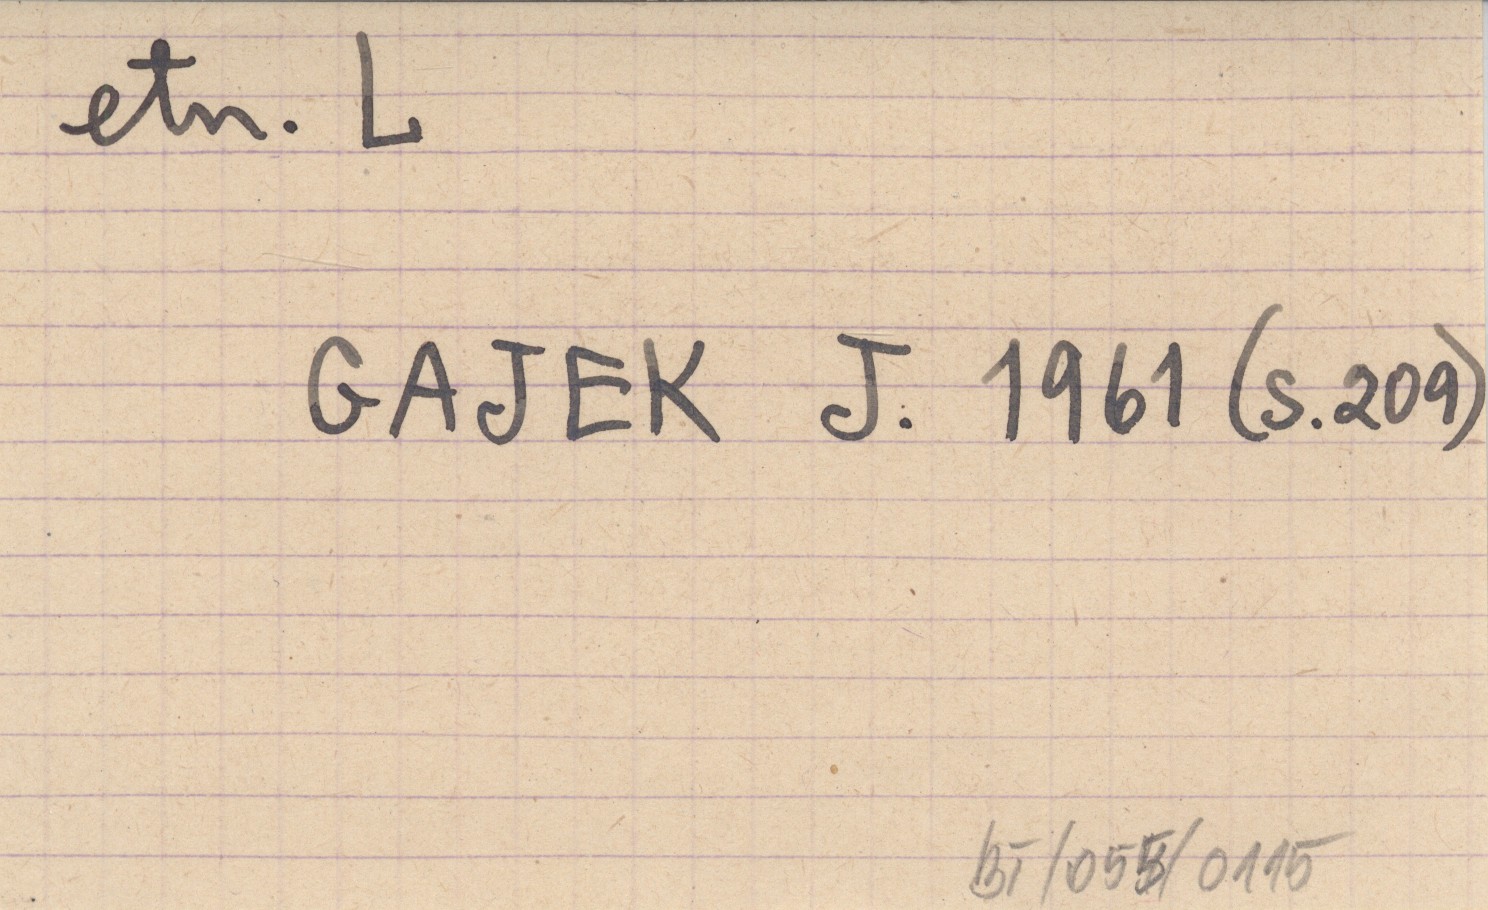 etn. L
GAJEK J. 1961 (s.209)
BI/055/0115